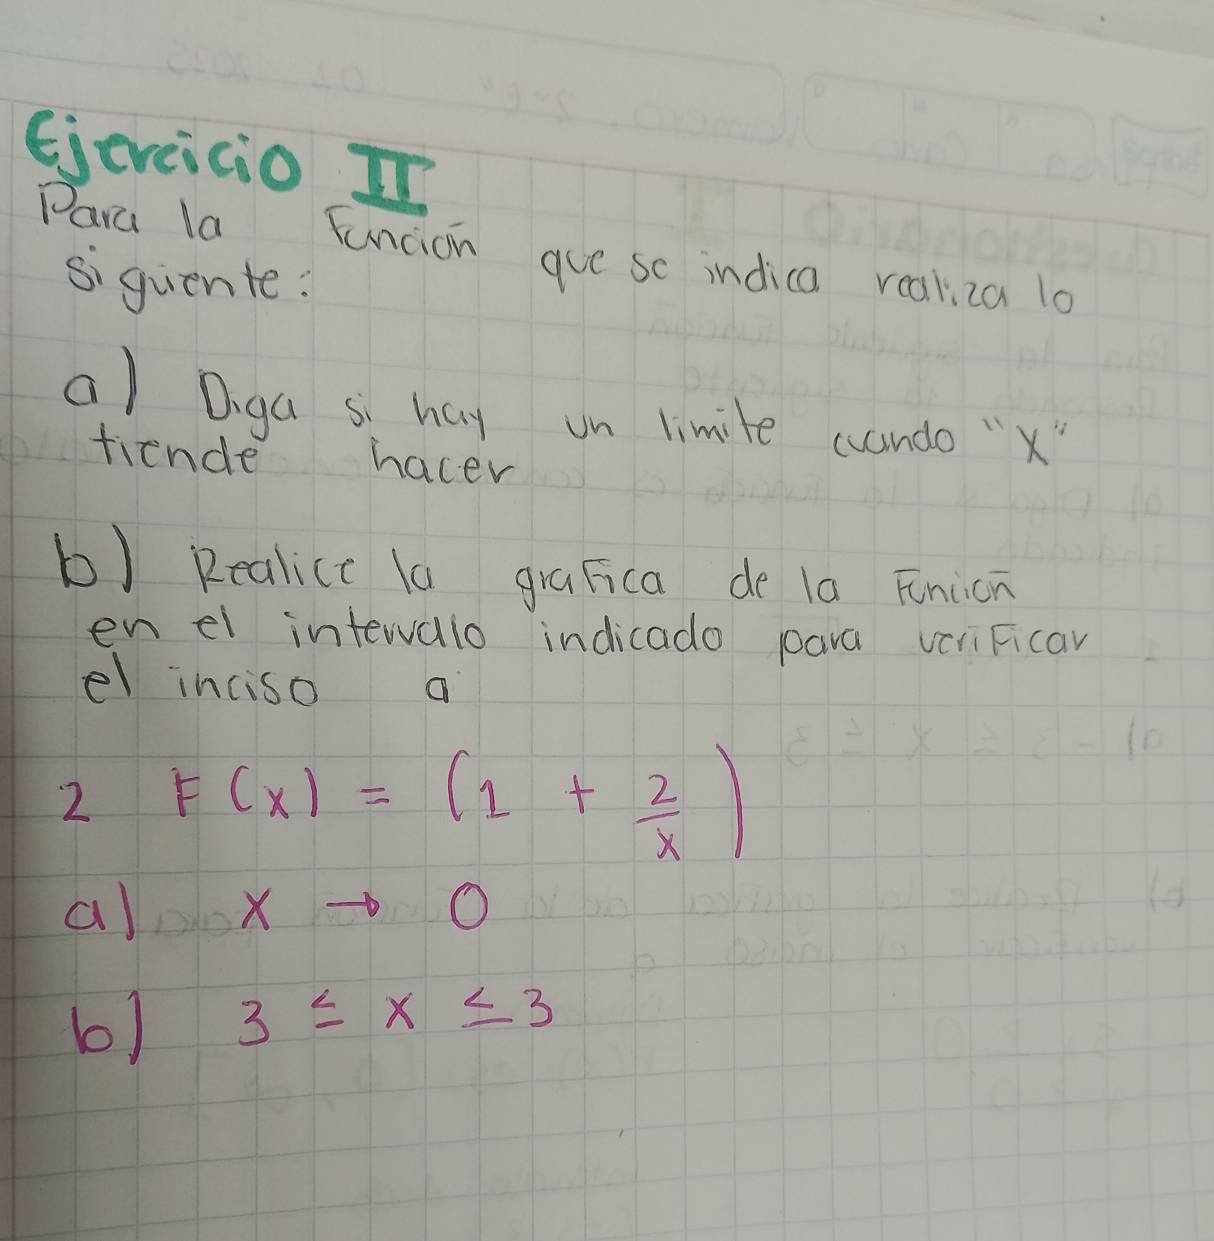 Ejercicio II
Para la Función que se indica realiza lo
siguiente:
a) Diga si hay un limite cuando "X"
tiende hacer
b) Realice la grafica de la Función
en el intervalo indicado para veriFicar
el inciso a
2 F(x) = (1 + 2/x)
a) x → 0
b) 3 ≤ x ≤ 3